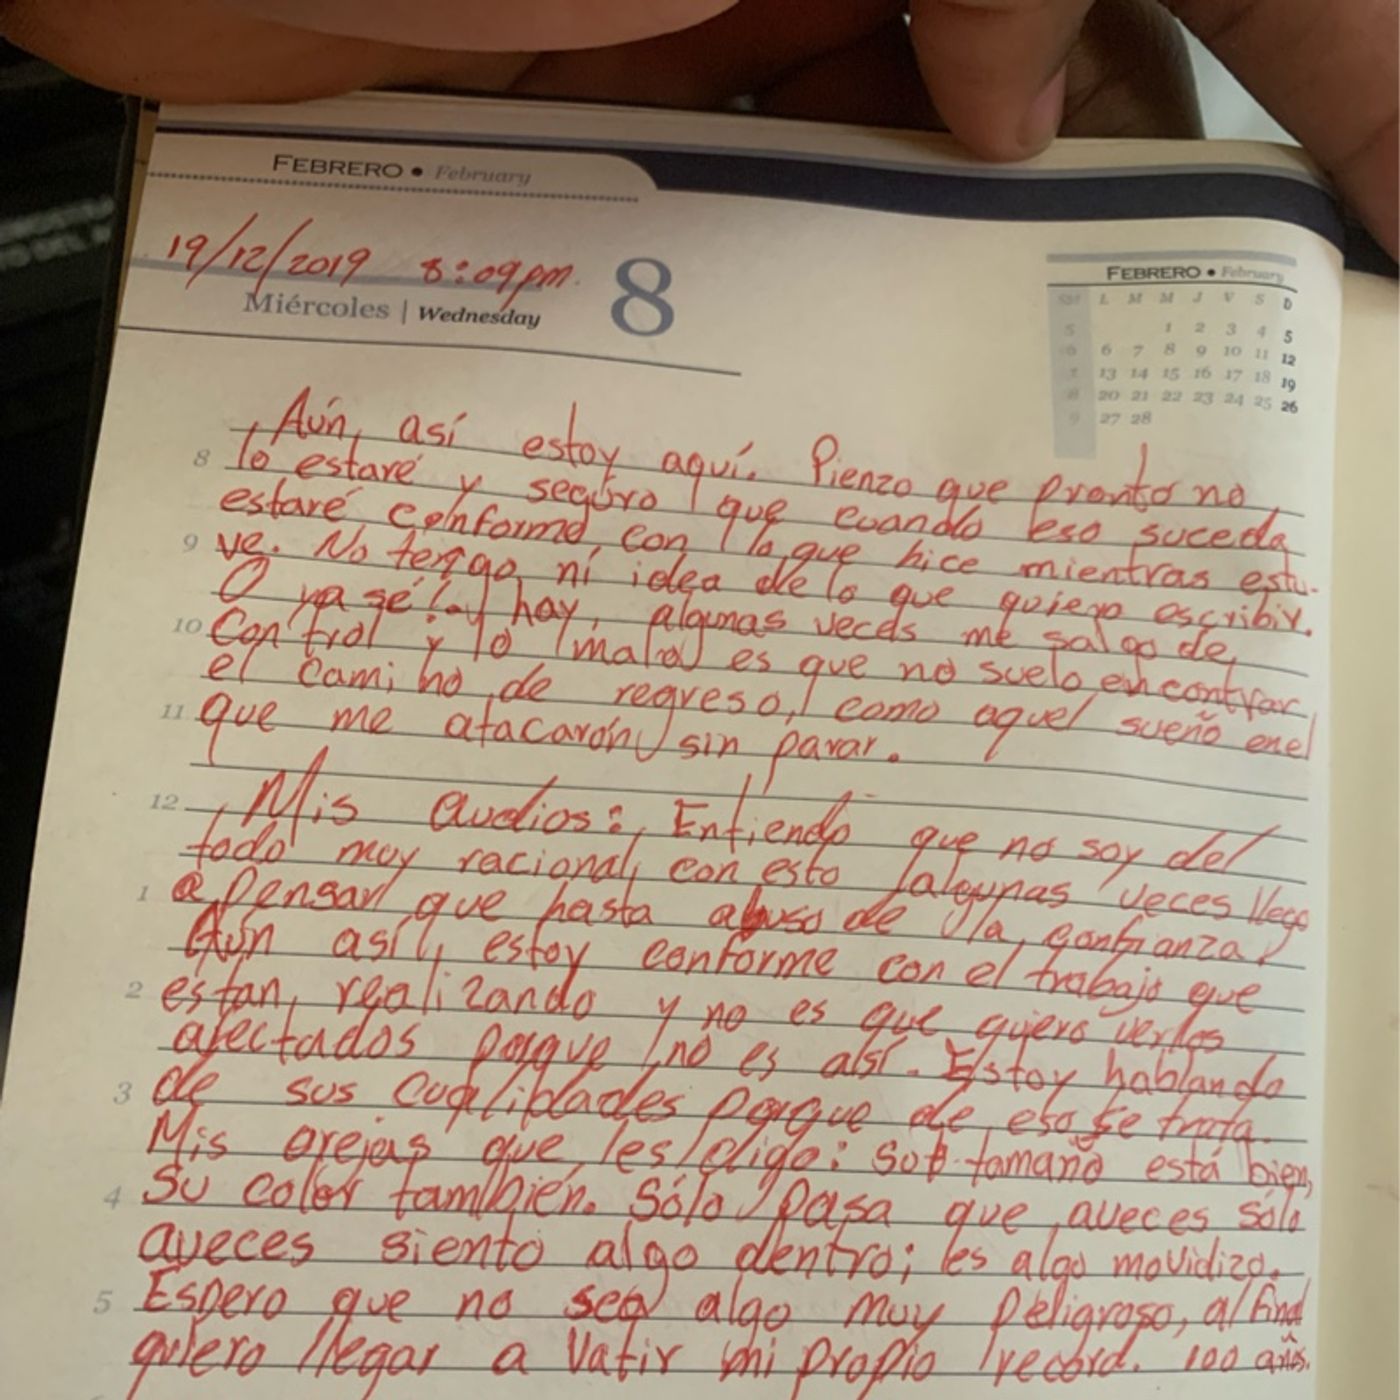 FEBRERO • February
19/12/2019 8:09pm.
Miércoles | Wednesday
8
FEBRERO • February
SM L M M J V S D
5 1 2 3 4 5
6 6 7 8 9 10 11 12
7 13 14 15 16 17 18 19
8 20 21 22 23 24 25 26
9 27 28
Aún, así estoy aquí. Pienzo que pronto no
8 lo estaré y seguro que cuando eso suceda
estaré conforme con lo que hice mientras estu-
9 ve. No tengo ni idea de lo que quiero escribir.
O ya sé!. hay, algunas veces me salgo de
10 Control y lo malo es que no suelo encontrar
el camino de regreso, como aquel sueño en el
11 que me atacarón sin parar.
12 Mis audios: Entiendo que no soy del
todo muy racional, con esto algunas veces llego
1 a pensar que hasta abuso de la confianza,
Aún así, estoy conforme con el trabajo que
2 estan, realizando y no es que quiero verlos
afectados porque no es así. Estoy hablando
3 de sus cualidades porque de eso se trata.
Mis orejas que les digo: su tamaño está bien,
4 Su color también. Sólo pasa que aveces sólo
aveces siento algo dentro; es algo movidizo.
5 Espero que no sea algo muy peligroso, al final
quiero llegar a Vatir mi propio record. 100 años.